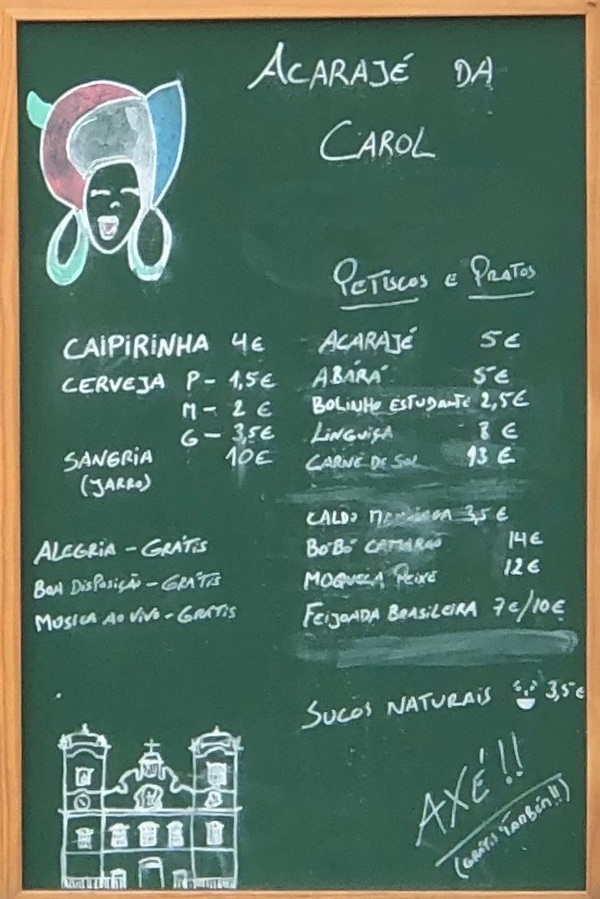 ACARAJÉ DA
CAROL
CAIPIRINHA 4€
CERVEJA P- 1,5€
M- 2 €
G- 3,5€
SANGRIA 10€
(JARRO)
ALEGRIA - GRÁTIS
BOA DISPOSIÇÃO - GRÁTIS
MUSICA AO VIVO - GRÁTIS
PETISCOS E PRATOS
ACARAJÉ 5€
ABARÁ 5€
BOLINHO ESTUDANTE 2,5€
LINGUIÇA 8 €
CARNE DE SOL 13 €
CALDO 3,5 €
BOBÓ CAMARÃO 14€
MOQUECA PEIXE 12€
FEIJOADA BRASILEIRA 7€/10€
SUCOS NATURAIS 3,5€
AXÉ!!
(GRÁTIS TAMBÉM!!)